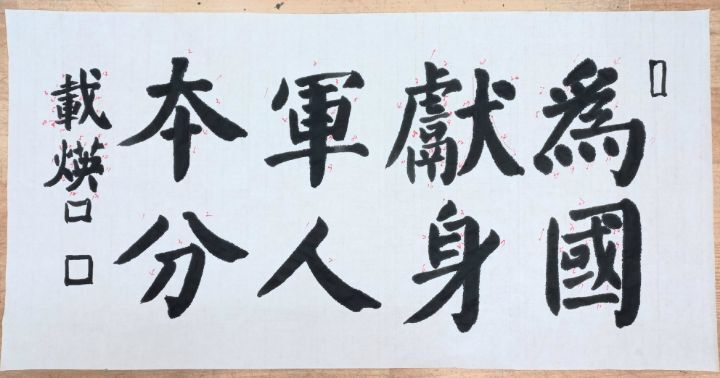 為國
獻身
軍人
本分
載煐